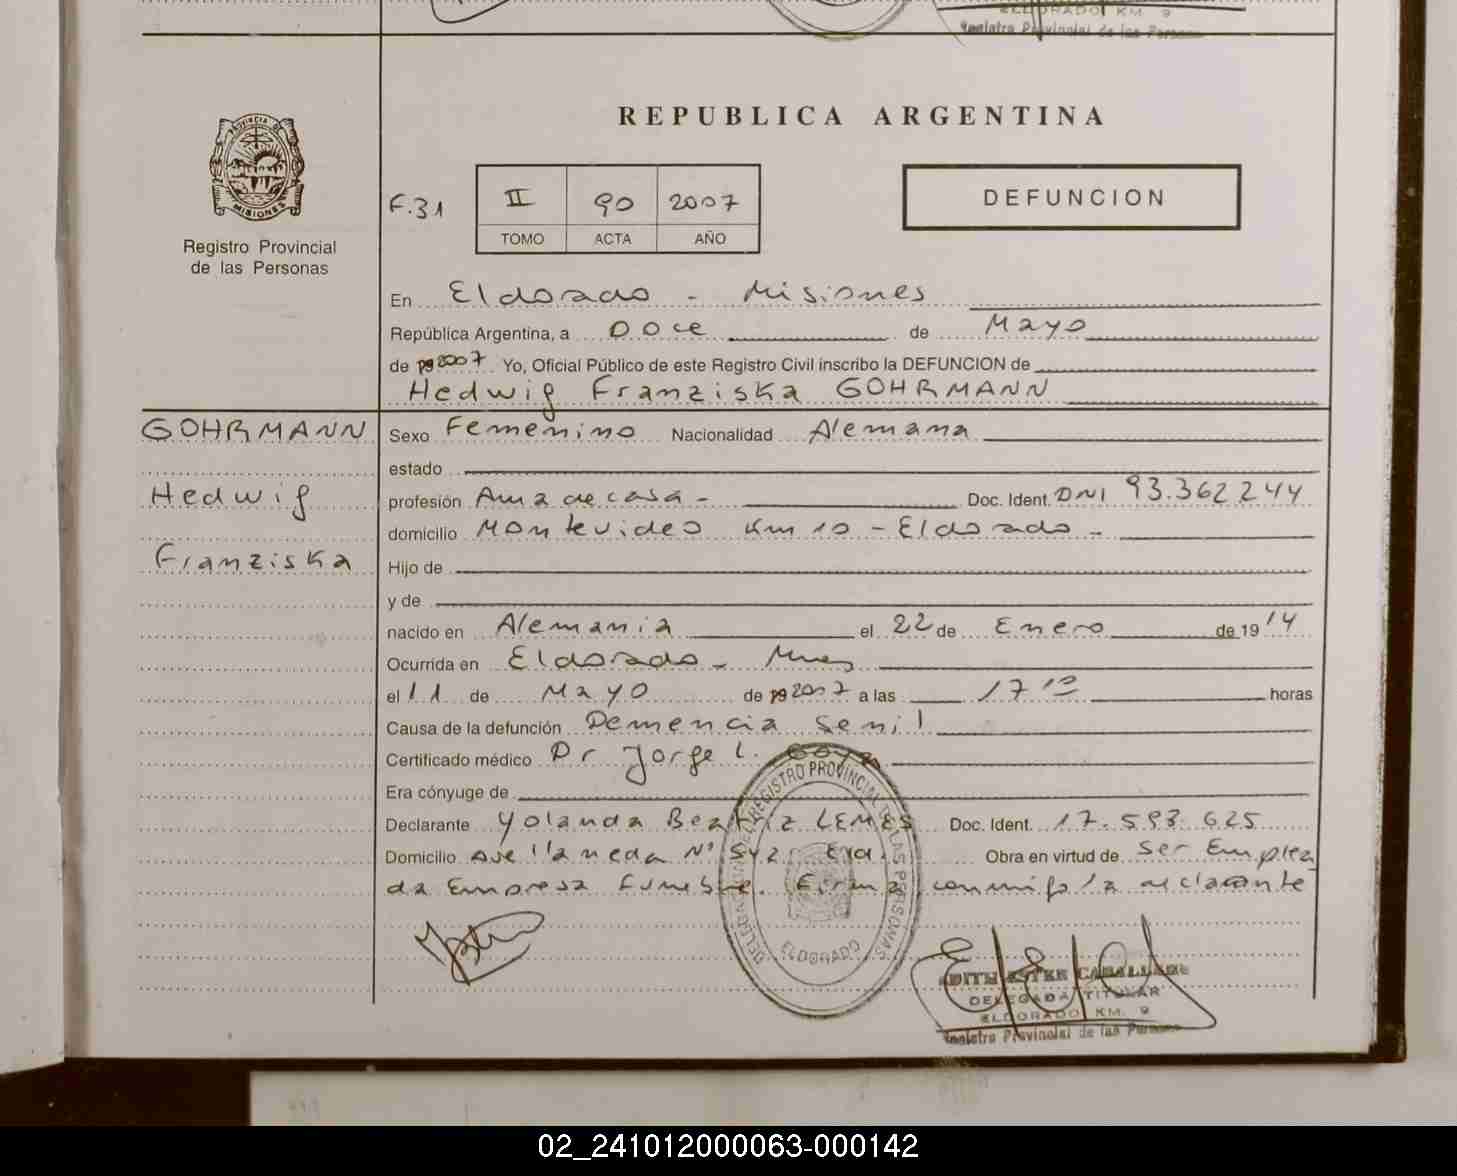 ELDORADO KM. 9
Registro Provincial de las Personas
REPUBLICA ARGENTINA
PROVINCIA DE
MISIONES
Registro Provincial
de las Personas
F.31
II 90 2007
TOMO ACTA AÑO
DEFUNCION
En Eldorado - Misiones
República Argentina, a Doce de Mayo
de 2007 Yo, Oficial Público de este Registro Civil inscribo la DEFUNCION de
Hedwig Franziska GOHRMANN
GOHRMANN
Hedwig
Franziska
Sexo Femenino Nacionalidad Alemana
estado
profesión Ama de casa - Doc. Ident. DNI 93.362.244
domicilio Montevideo Km 10 - Eldorado -
Hijo de
y de
nacido en Alemania el 22 de Enero de 1914
Ocurrida en Eldorado - Mnes
el 11 de Mayo de 2007 a las 17 10 horas
Causa de la defunción Demencia Senil
Certificado médico Dr Jorge L.
Era cónyuge de
Declarante Yolanda Beatriz LEMES Doc. Ident. 17.593.625
Domicilio Avellaneda Nº Obra en virtud de Ser Emplea
da Empresa Funebre. Firma conmigo la declarante
DELEGACION DEL REGISTRO PROVINCIAL DE LAS PERSONAS
ELDORADO
EDITH ESTER CABALLERO
DELEGADA TITULAR
ELDORADO KM. 9
Registro Provincial de las Personas
02_241012000063-000142